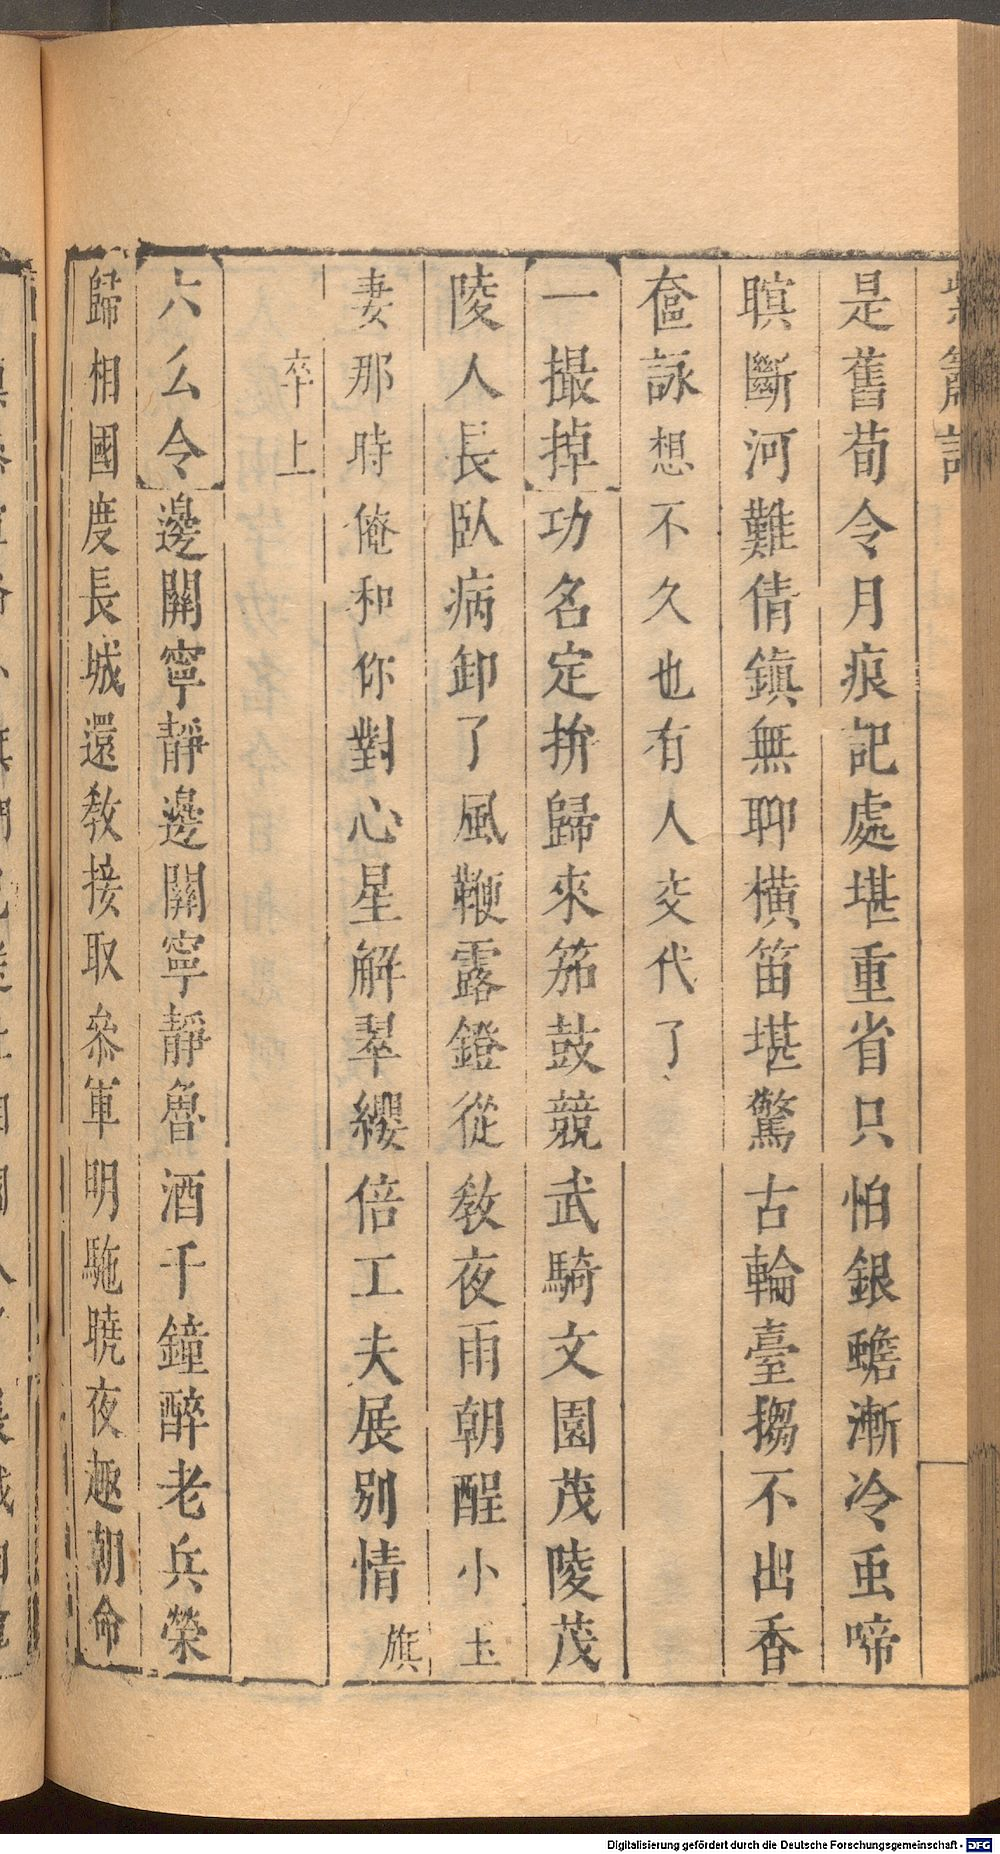 紫簫記
是舊荀令月痕記處堪重省只怕銀蟾漸冷䖝啼
瞑斷河難倩鎮無聊橫笛堪驚古輪臺搊不出香
奩詠想不久也有人交代了
一撮掉功名定拚歸來笳鼓競武騎文園茂陵茂
陵人長臥病卸了風鞭露鐙從敎夜夜雨朝醒小玉
妻那時俺和你對心星解翠纓倍工夫展別情旗
卒上
六么令邊關寧靜邊關寧靜魯酒千鐘醉老兵榮
歸相國度長城還敎接取叅軍明駞曉夜趣朝命
Digitalisierung gefördert durch die Deutsche Forschungsgemeinschaft - DFG